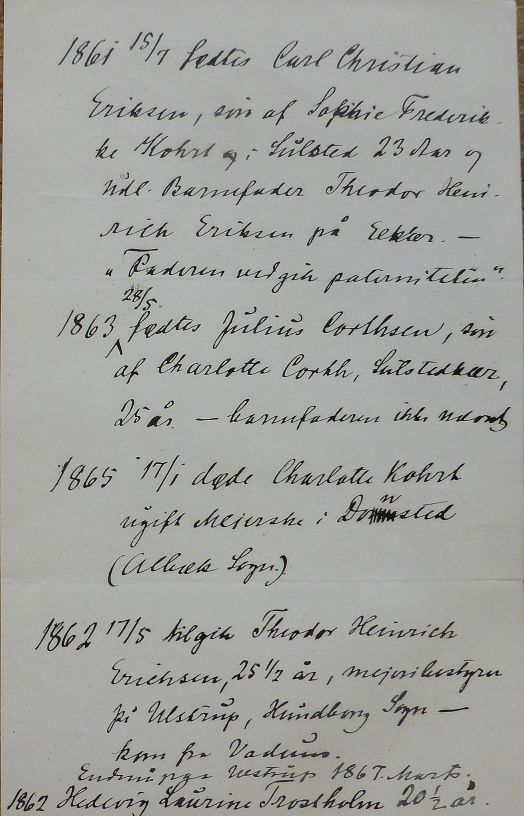 1861 15/7 fødtes Carl Christian
Eriksen, søn af Sophie Frederik-
ke Kohrt i Sulsted 23 Aar og
udl. Barnefader Theodor Hein-
rich Eriksen på —
"Faderen vedgik paterniteten".
28/5
1863 fødtes Julius Corthsen, søn
af Charlotte Corth, Sulstedkær,
25 år. — barnefaderen ikke
1865 17/1 døde Charlotte Kohrt
ugift Mejerske i Donsted
(Albæk Sogn.)
1862 17/5 tilgik Theodor Heinrich
Erichsen, 25 1/2 år, mejeribestyrer
på Ulstrup, Hundborg Sogn —
kom fra Vadum.
Endnu paa Ulstrup 1867. Marts.
1862 Hedevig Laurine Trostholm 20 1/2 år.